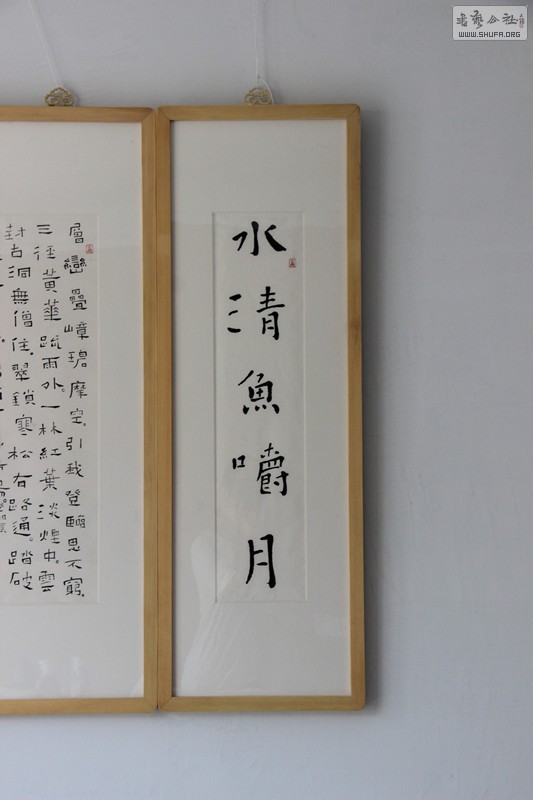 书艺公社
WWW.SHUFA.ORG
水清魚嚼月
層巒疊嶂碧摩空。引我登臨思不窮。
三徑黃華疏雨外。一林紅葉淡煙中。雲
封古洞無僧住。翠鎖寒松有路通。踏破